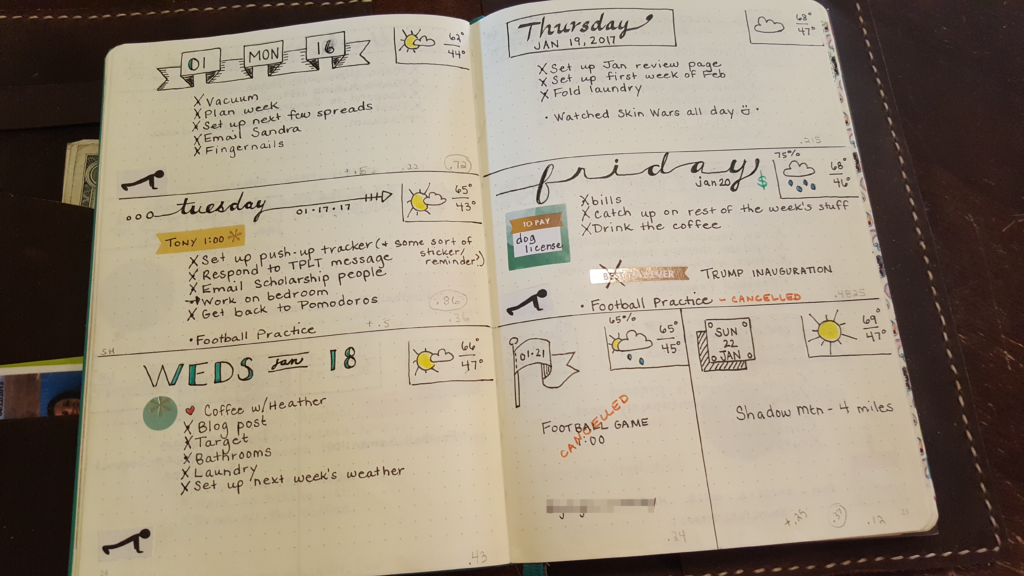 01 MON 16
62°
44°
X Vacuum
X Plan week
X Set up next few spreads
X Email Sandra
X Fingernails
.22 .72
tuesday 01·17·17
65°
43°
TONY 1:00
X Set up push-up tracker (& some sort of sticker/reminder?)
X Respond to TPLT message
X Email Scholarship people
→ Work on bedroom
X Get back to Pomodoros
.86
.36
• Football Practice
+.5
SH
WEDS Jan 18
66°
47°
♥ Coffee w/Heather
X Blog post
X Target
X Bathrooms
X Laundry
X Set up next week's weather
.43
Thursday
JAN 19, 2017
68°
47°
X Set up Jan review page
X Set up first week of Feb
X Fold laundry
• Watched Skin Wars all day
.215
friday
Jan 20
$
75%
68°
46°
TO PAY
dog license
X bills
X Catch up on rest of the week's stuff
X Drink the coffee
TRUMP INAUGURATION
• Football Practice - CANCELLED
.4825
01·21
65%
65°
45°
FOOTBALL GAME
:00
CANCELLED
.24
SUN
22
JAN
69°
47°
Shadow Mtn - 4 miles
+.25 .12